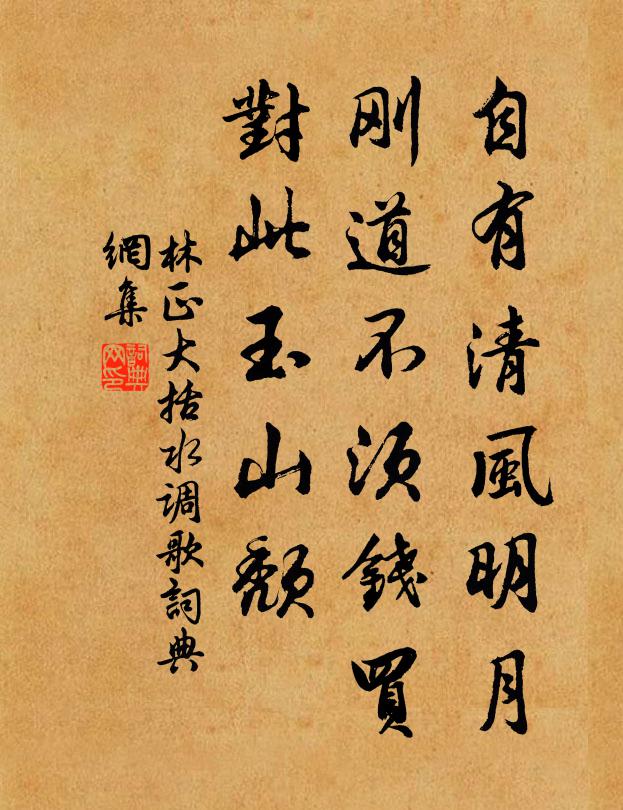 自有清風明月
刚道不須錢買
對此玉山頹
林正大括水调歌詞典
網集
詞典
网印